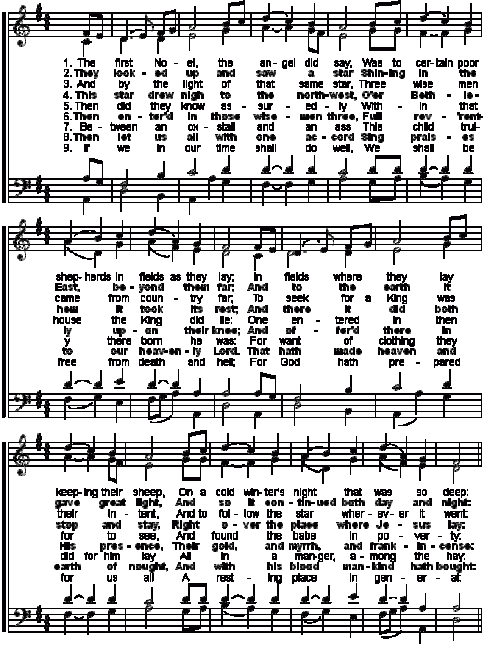 1. The first No - el, the an - gel did say, Was to cer - tain poor
2. They look - ed up and saw a star Shin - ing in the
3. And by the light of that same star, Three wise men
4. This star drew nigh to the north - west, O'er Beth - le -
5. Then did they know as - sur - ed - ly With - in that
6. Then en - ter'd in those wise - men three, Full rev - 'rent-
7. Be - tween an ox - stall and an ass This child tru-
8. Then let us all with one ac - cord Sing prais - es
9. If we in our time shall do well, We shall be
shep - herds in fields as they lay; In fields where they lay
East, be - yond them far; And to the earth it
came from coun - try far; To seek for a King was
hem it took its rest; And there it did both
house the King did lie: One en - tered in then
ly up - on their knee; And of - fer'd there in
y there born he was: For want of clothing they
to our heav - en - ly Lord. That hath made heaven and
free from death and hell; For God hath pre - pared
keep - ing their sheep, On a cold win - ter's night that was so deep:
gave great light, And so it con - tinued both day and night:
their in - tent, And to fol - low the star wher - ev - er it went:
stop and stay, Right o - ver the place where Je - sus lay:
for to see, And found the babe in po - ver - ty:
His pres - ence, Their gold, and myrrh, and frank - in - cense:
did for him lay All in a man - ger, a - mong the hay:
earth of nought, And with his blood man - kind hath bought:
for us all A rest - ing place in gen - er - al: